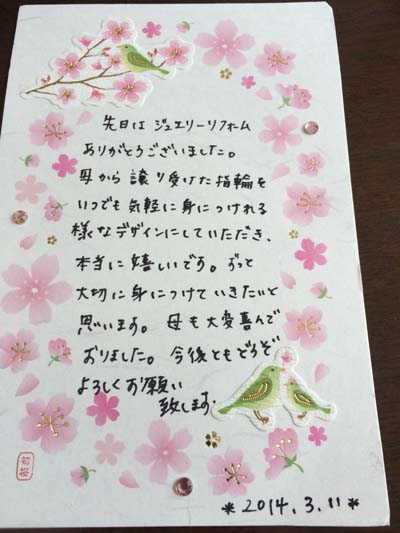 先日は ジュエリーリフォーム
ありがとうございました。
母から 譲り受けた指輪を
いつでも気軽に身につけれる
様なデザインにしていただき、
本当に嬉しいです。ずっと
大切に身につけていきたいと
思います。 母も大変喜んで
おりました。今後ともどうぞ
よろしくお願い
致します。
* 2014. 3. 11 *